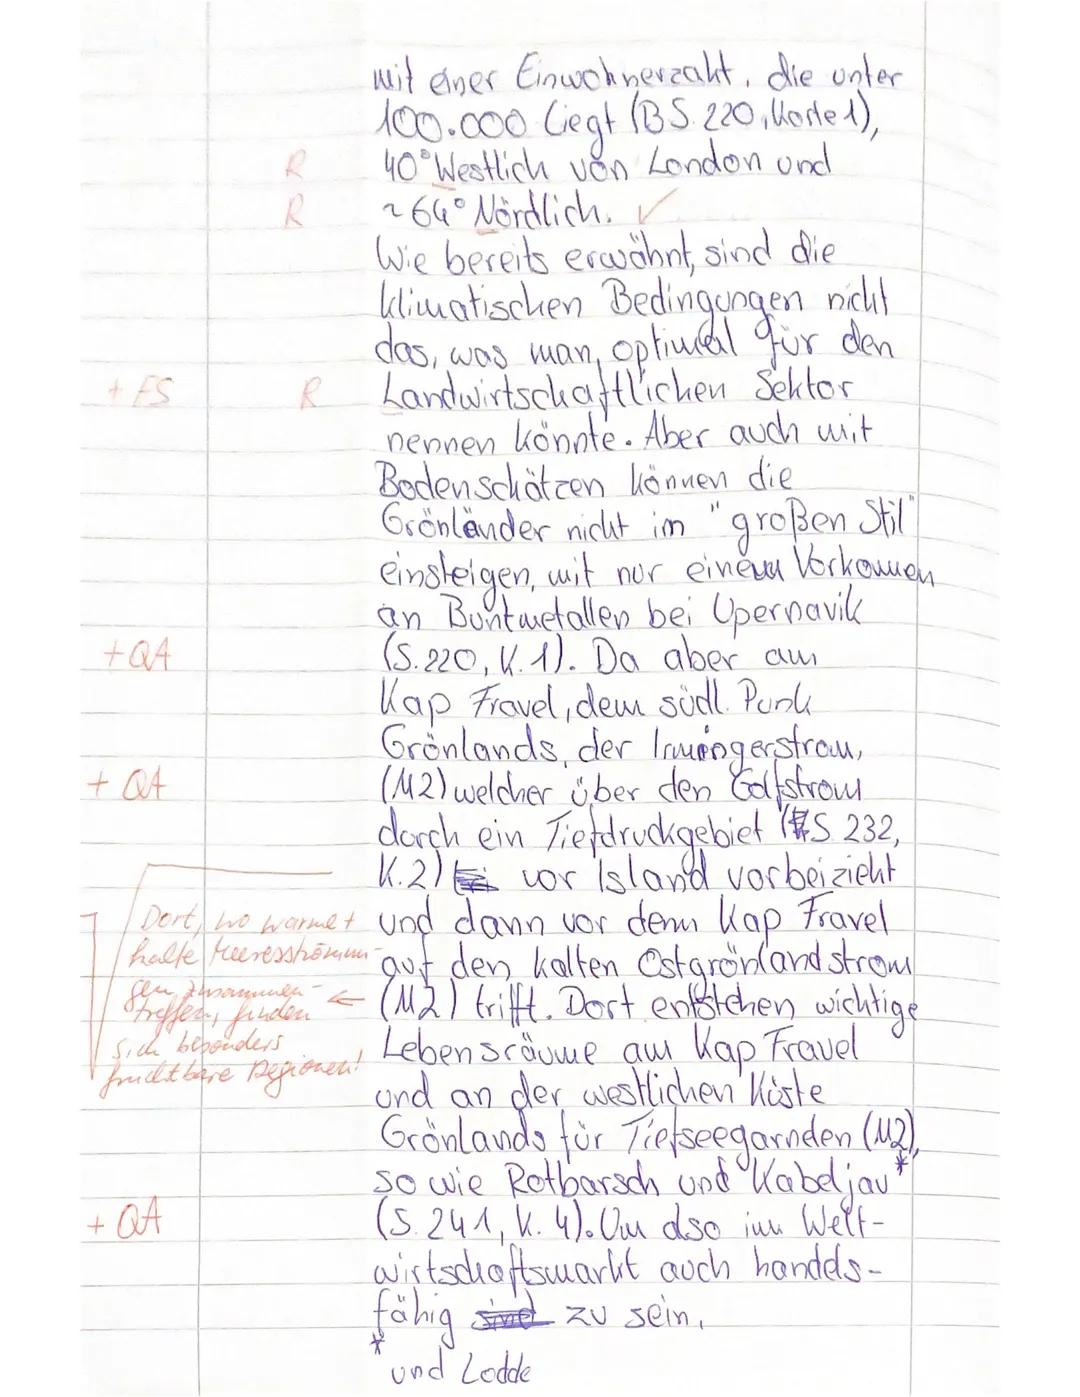 mit einer Einwohnerzahl, die unter
100.000 liegt (B S. 220, Karte 1),
R 40° Westlich von London und
R ~ 64° Nördlich. ✓
Wie bereits erwähnt, sind die
klimatischen Bedingungen nicht
das, was man, optimal für den
+ FS R Landwirtschaftlichen Sektor
nennen könnte. Aber auch mit
Bodenschätzen können die
Grönländer nicht im "großen Stil"
einsteigen, mit nur einem Vorkommen
an Buntmetallen bei Upernavik
+ QA (S. 220, K. 1). Da aber am
Kap Fravel, dem südl. Punk
Grönlands, der Irmingerstrom,
+ QA (M2) welcher über den Golfstrom
durch ein Tiefdruckgebiet (S. 232,
K. 2) vor Island vorbeizieht
und dann vor dem Kap Fravel
auf den kalten Ostgrönlandstrom
(M2) trifft. Dort entstehen wichtige
Lebensräume am Kap Fravel
und an der westlichen Küste
Grönlands für Tiefseegarnden (M2),
so wie Rotbarsch und Kabeljau*
+ QA (S. 241, K. 4). Um dso im Welt-
wirtschaftsmarkt auch handels-
fähig sind zu sein.
*
und Lodde
Dort, wo warme +
kalte Meeresströmun-
gen zusammen-
treffen, finden
sich besonders
fruchtbare Regionen!